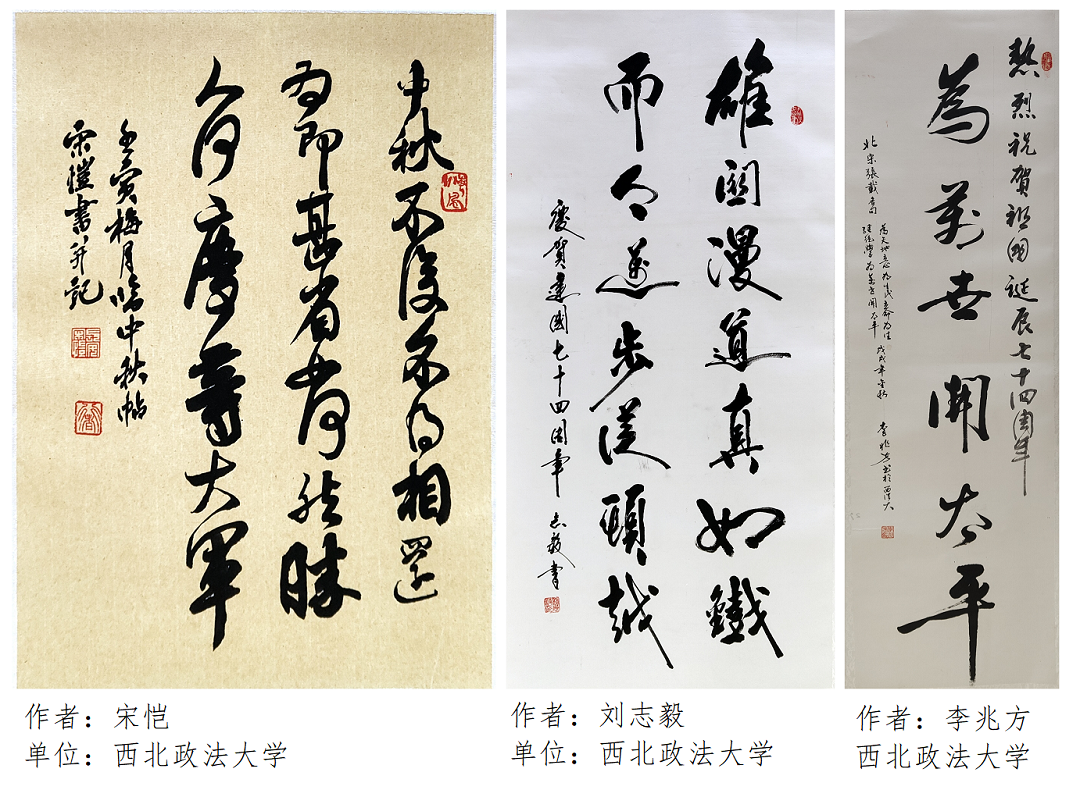 中秋不復不得相還
為即甚省如何然勝
人何慶等大軍
壬寅梅月臨中秋帖
宋愷書并記
雄關漫道真如鐵
而今邁步從頭越
慶賀建國七十四周年 志毅書
熱烈祝賀祖國誕辰七十四周年
為萬世開太平
北宋張載句
為天地立心為生民立命為往
聖繼絕學為萬世開太平
戊戌年金秋 李兆方書於西法大
作者：宋恺
单位：西北政法大学
作者：刘志毅
单位：西北政法大学
作者：李兆方
西北政法大学